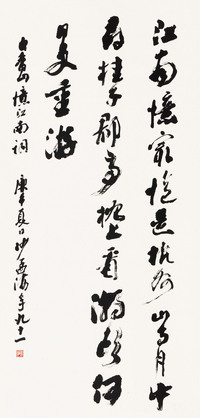 江南憶最憶是杭州山寺月中
尋桂子郡亭枕上看潮頭何
日更重游
白香山憶江南詞 庚午夏日沙孟海年九十一